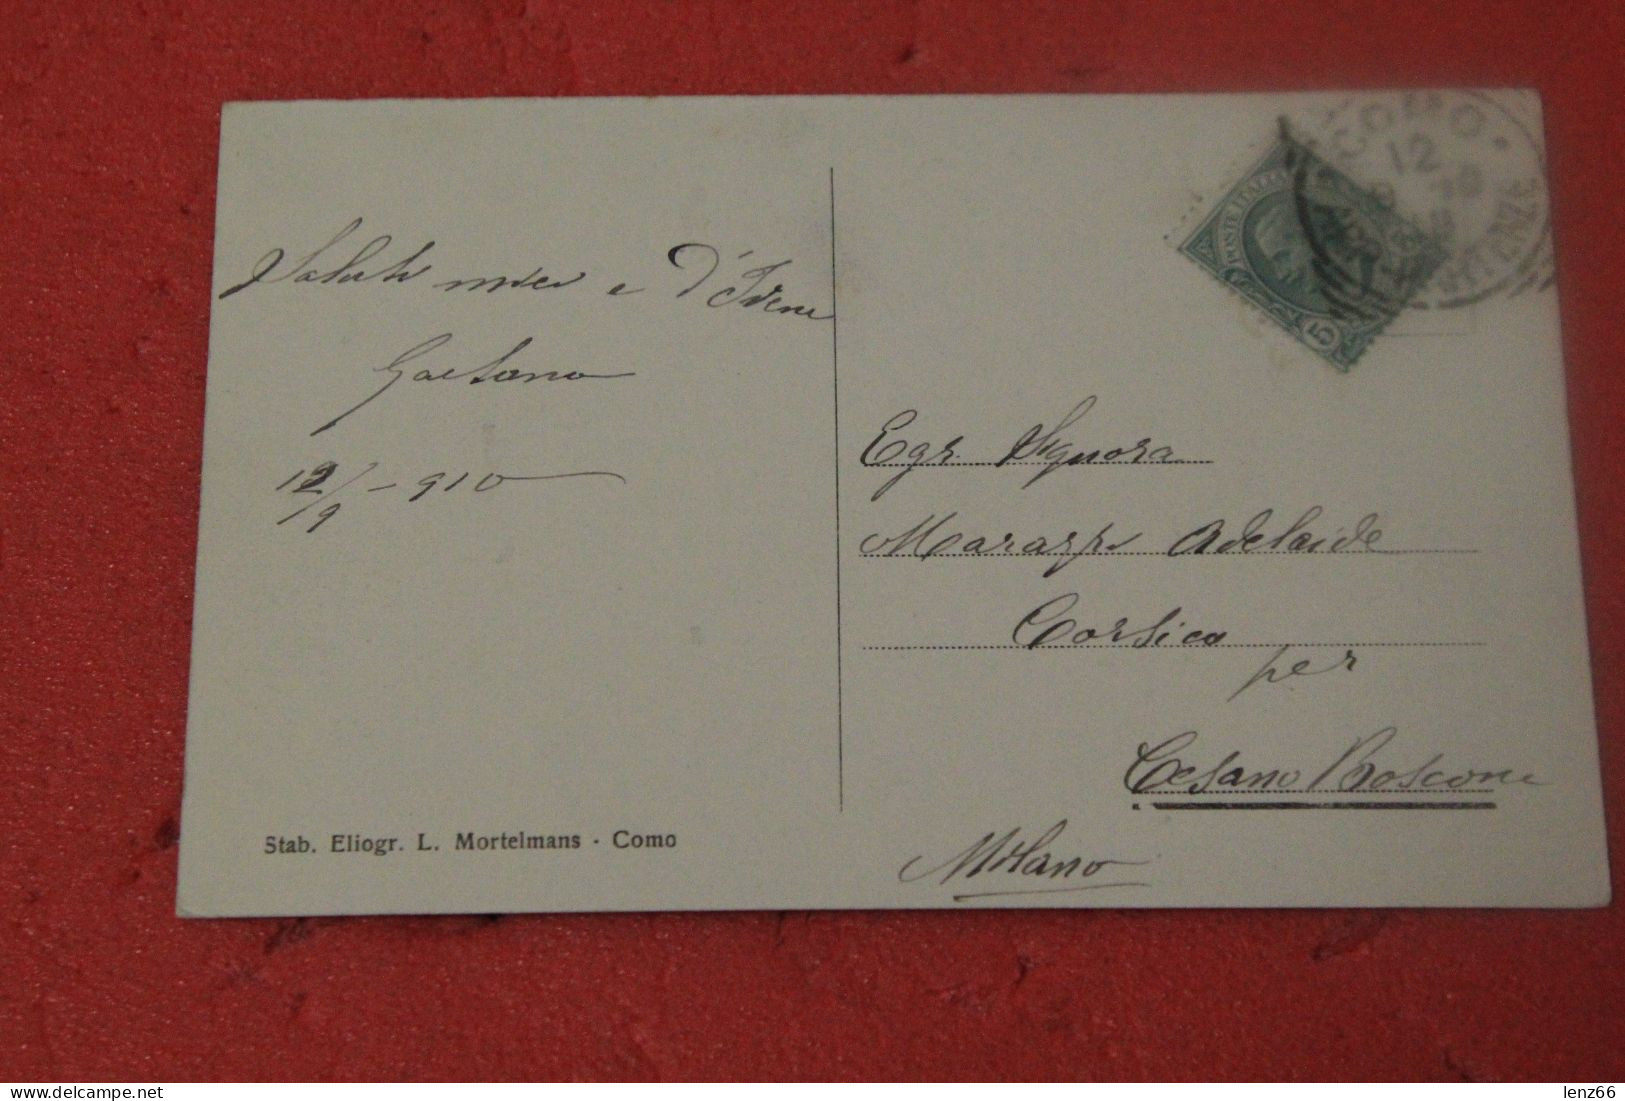 Saluti miei e d'Irene
Gaetano
12/9 - 910
Stab. Eliogr. L. Mortelmans - Como
COMO
12
POSTE ITALIANE
5
Egr. Signora
Adelaide
Corsico
per
Cesano Boscone
Milano
lenz66